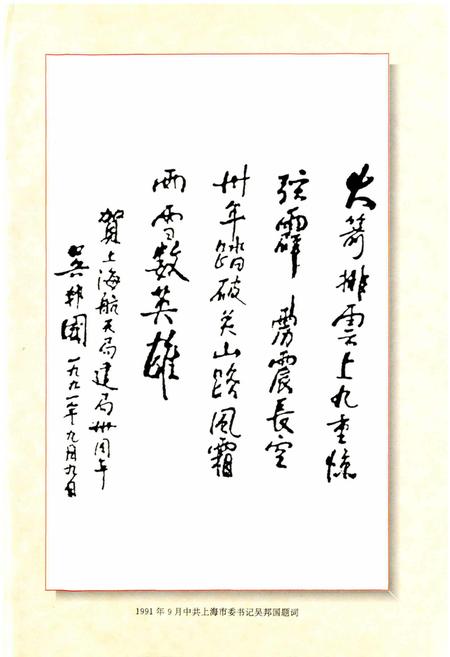 火箭排雲上九重惊
弦霹雳震長空
卅年踏破关山路風霜
雨雪数英雄
贺上海航天局建局卅周年
吴邦國 一九九一年九月九日
1991 年 9 月中共上海市委书记吴邦国题词